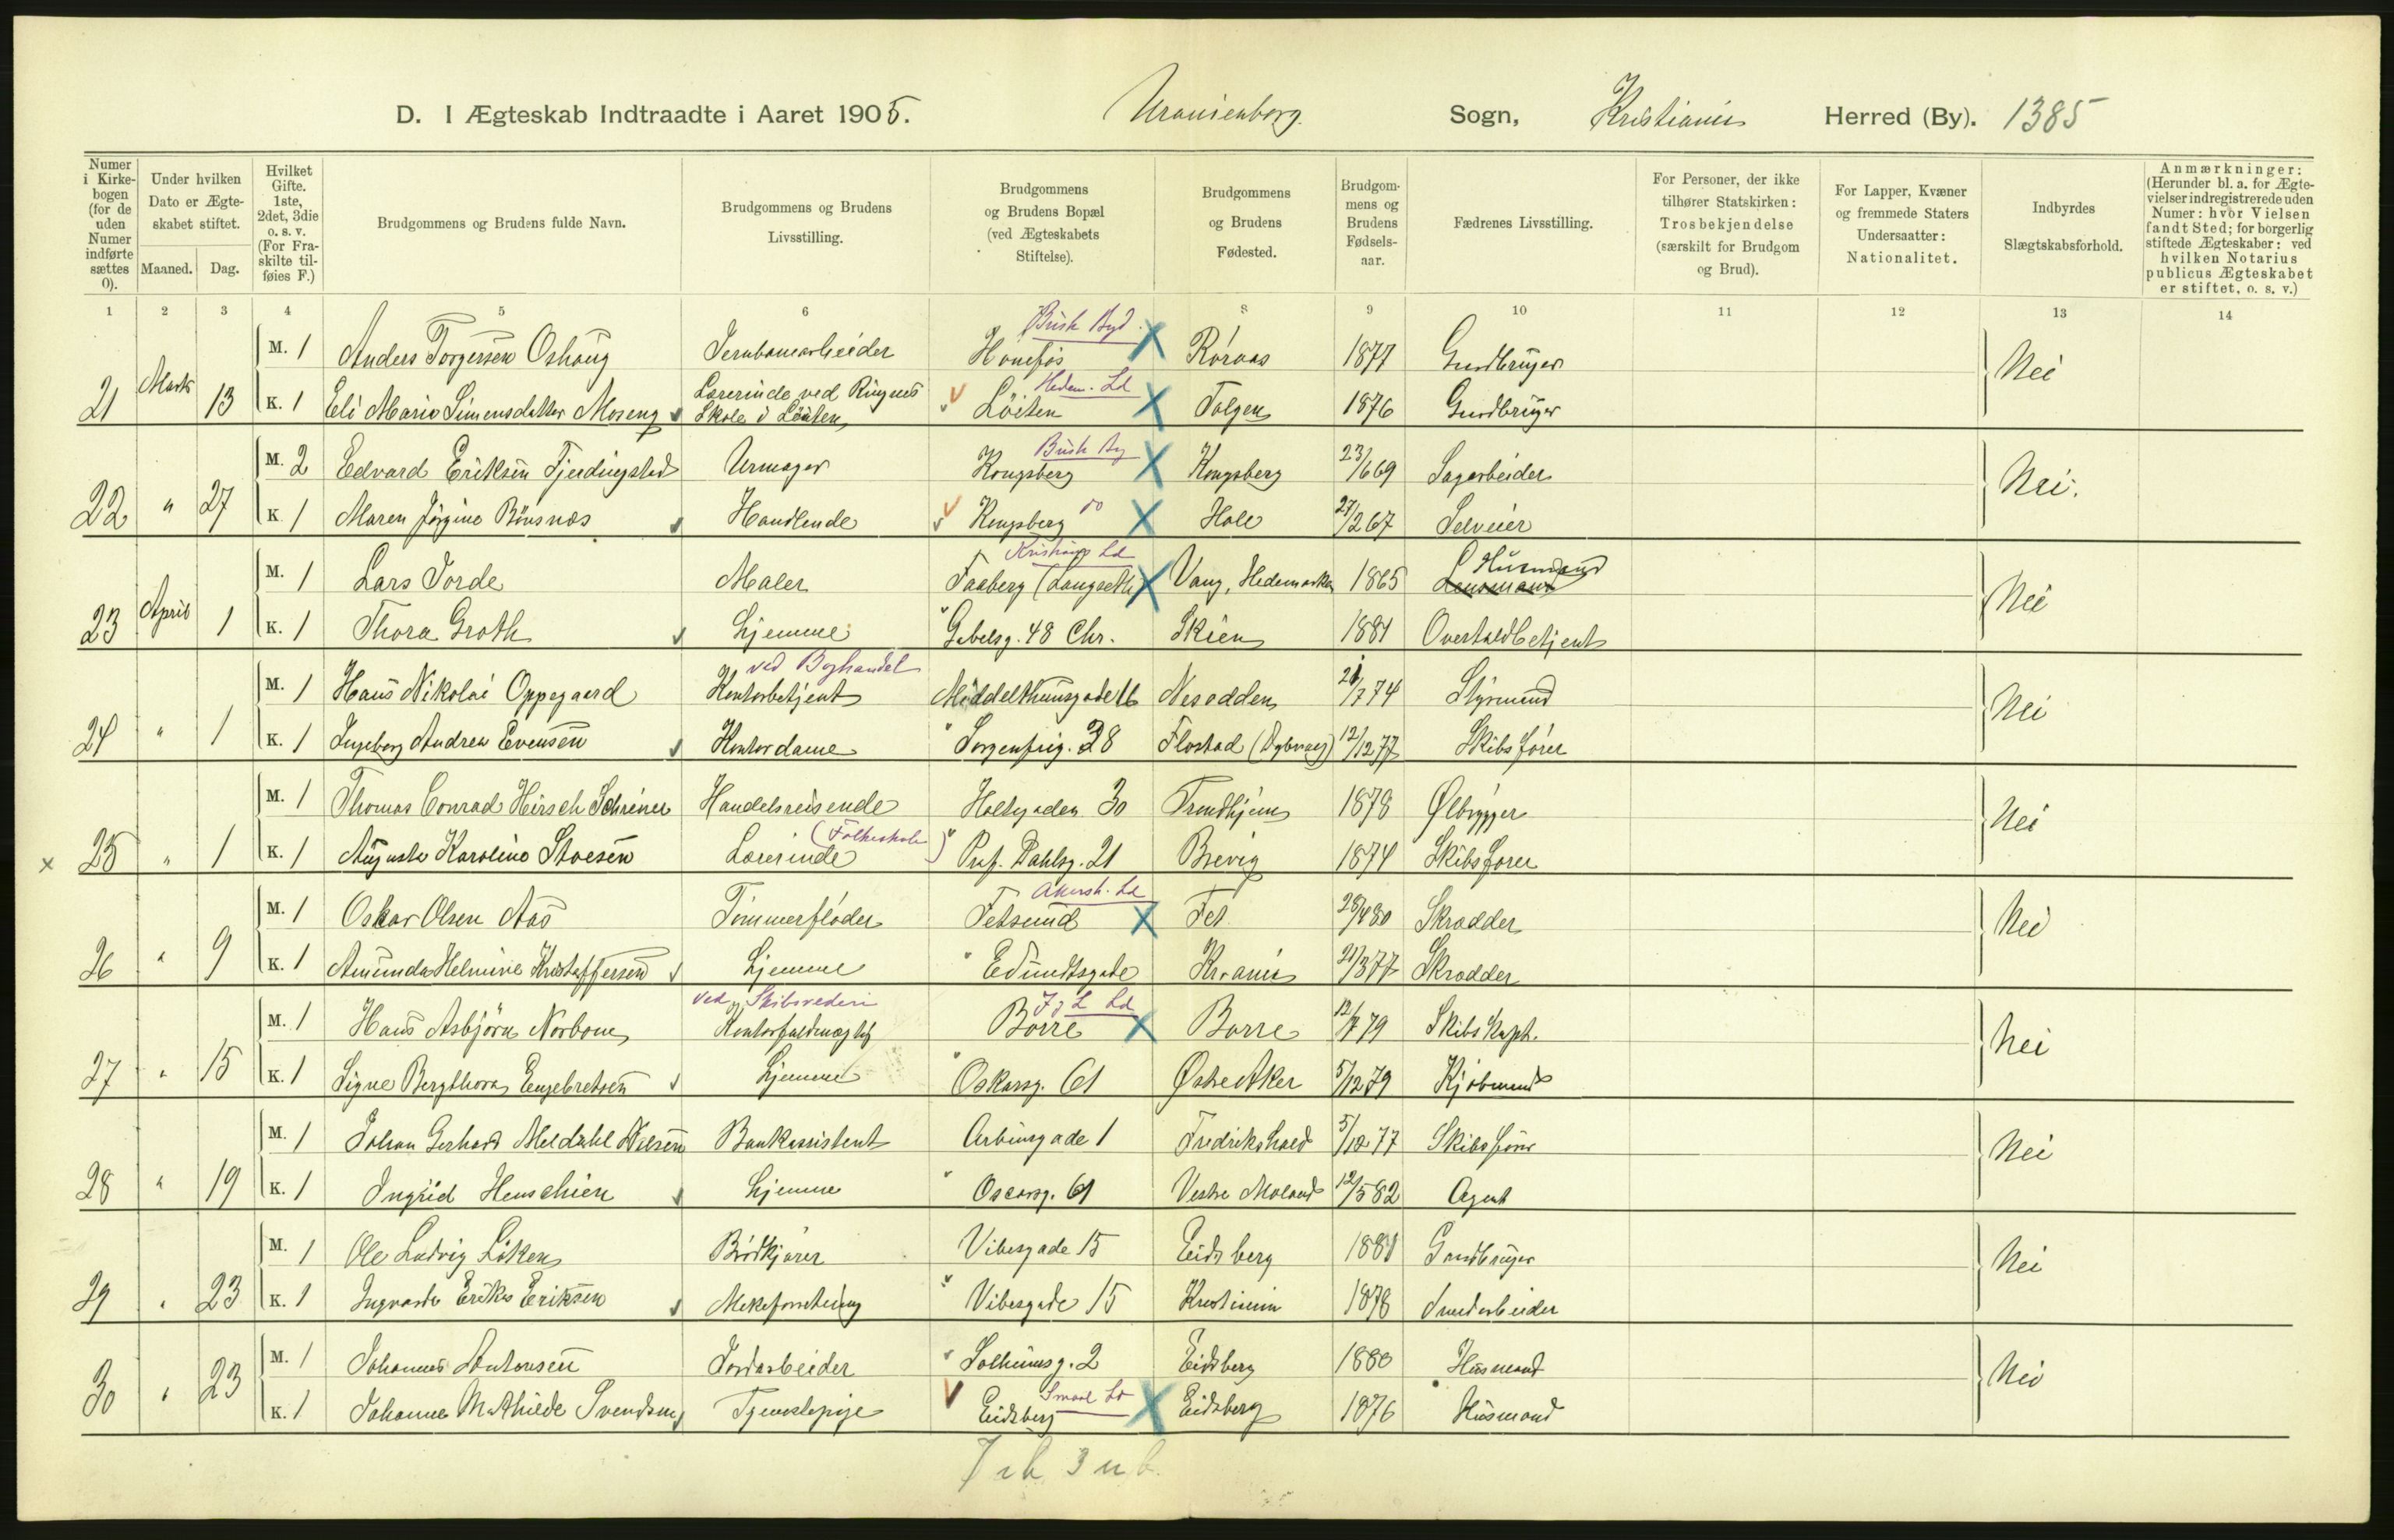 D. I Ægteskab Indtraadte i Aaret 1905. Uranienborg Sogn, Kristiania Herred (By). 1385
Numer i Kirke-bogen (for de uden Numer indførte sættes 0).
Under hvilken Dato er Ægte-skabet stiftet.
Maaned. Dag.
Hvilket Gifte. 1ste, 2det, 3die o. s. v. (For Fra-skilte til-føies F.)
Brudgommens og Brudens fulde Navn.
Brudgommens og Brudens Livsstilling.
Brudgommens og Brudens Bopæl (ved Ægteskabets Stiftelse).
Brudgommens og Brudens Fødested.
Brudgom-mens og Brudens Fødsels-aar.
Fædrenes Livsstilling.
For Personer, der ikke tilhører Statskirken: Trosbekjendelse (særskilt for Brudgom og Brud).
For Lapper, Kvæner og fremmede Staters Undersaatter: Nationalitet.
Indbyrdes Slægtskabsforhold.
Anmærkninger: (Herunder bl. a. for Ægte-vielser indregistrerede uden Numer: hvor Vielsen fandt Sted; for borgerlig stiftede Ægteskaber: ved hvilken Notarius publicus Ægteskabet er stiftet, o. s. v.)
1 2 3 4 5 6 8 9 10 11 12 13 14
Busk Byd.
M. 1 Anders Torgersen Oshaug Jernbanearbeider Hønefos Röraas 1877 Gaardbruger
21 Marts 13 Nei
Hedm. Ld
K. 1 Eli Marie Simensdatter Moseng Lærerinde ved Ringnes Skole i Löiten Löiten Tolgen 1876 Gaardbruger
Busk By
M. 2 Edvard Eriksen Tjerdingstad Urmager Kongsberg Kongsberg 23/6 69 Sagarbeider
22 " 27 Nei.
K. 1 Maren Jörgine Bönsnæs Handlende Kongsberg do Hole 27/2 67 Selveier
Kristians Ld
M. 1 Lars Jorde Maler Faaberg (Langseth) Vang, Hedemarken 1865 Lensmand Husmand
23 April 1 Nei
K. 1 Thora Groth Hjemme Gabelsg. 48 Chr. Skien 1881 Overtoldbetjent
ved Boghandel
M. 1 Hans Nikolai Oppegaard Kontorbetjent Middelthunsgade 16 Nesodden 21/7 74 Styrmand
24 " 1 Nei
K. 1 Ingeborg Andrea Evensen Kontordame Sorgenfrig. 28 Flostad (Dybvaag) 12/12 77 Skibsfører
M. 1 Thomas Conrad Hirsch Schreiner Handelsreisende Holtegaden 30 Trondhjem 1878 Ølbrygger
x 25 " 1 Nei
(Folkeskole)
K. 1 Augusta Karoline Stoesen Lærerinde Prof. Dahlsg. 21 Brevig 1874 Skibsfører
Akersh. Ld
M. 1 Oskar Olsen Aas Tömmerflöder Fetsund Fet 28/4 80 Skrædder
26 " 9 Nei
K. 1 Amunda Helmine Kristoffersen Hjemme Edmundtsgade Kr.ania 21/3 77 Skrædder
ved Skibsrederi J. L. Ld
M. 1 Hans Asbjörn Norbom Kontorfuldmægtig Borre Borre 12/7 79 Skibskapt.
27 " 15 Nei
K. 1 Signe Bergthora Engebretsen Hjemme Oskarsg. 61 Østre Aker 5/12 79 Kjöbmand
M. 1 Johan Gerhard Meldahl Nilsen Bankassistent Arbinsgade 1 Fredrikshald 5/12 77 Skibsförer
28 " 19 Nei
K. 1 Ingrid Henschien Hjemme Oscarsg. 61 Vestre Moland 12/5 82 Agent
M. 1 Ole Ludvig Löken Brödkjører Vibesgade 15 Eidsberg 1881 Gaardbruger
29 " 23 Nei
K. 1 Ingvarda Erika Eriksen Vibesgade 15 Kristiania 1878
M. 1 Johannes Antonsen Jordarbeider Solheimsg. 2 Eidsberg 1880 Husmand
30 " 23 Nei
Smaal Ld
K. 1 Johanne Mathilde Svendsen Tjenestepige Eidsberg Eidsberg 1876 Husmand
7 ib 3 u b.